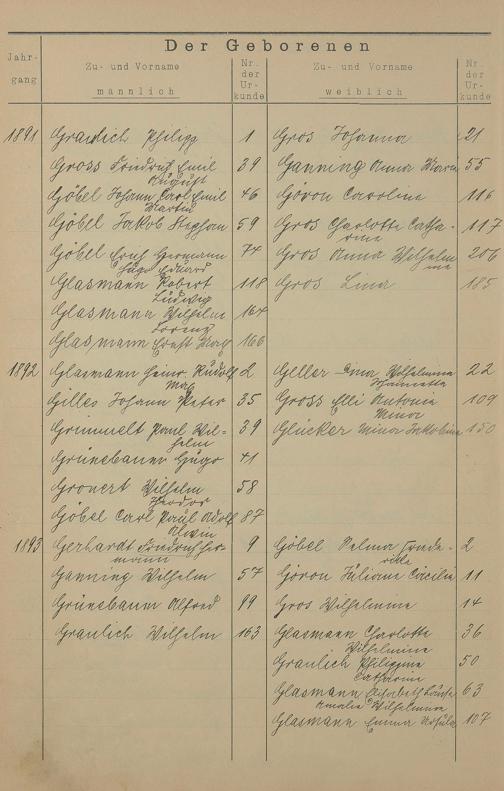 Der Geborenen
Jahr-
gang
Zu- und Vorname
männlich
Nr.
der
Ur-
kunde
Zu- und Vorname
weiblich
Nr.
der
Ur-
kunde
1891 Graulich Philipp 1 Gros Johanna 21
Gross Friedrich Emil 39 Ganning Anna Maria 55
August
Göbel Johann Carl Emil 46 Göron Caroline 116
Martin
Göbel Jakob Stephan 59 Gros Charlotte Catha- 117
rine
Göbel Ernst Hermann 74 Gros Anna Wilhelm 206
Hugo Eduard
ine
Glasmann Robert 118 Gros Lina 185
Ludwig
Glasmann Wilhelm 164
Lorenz
Glasmann Ernst Max 166
1892 Glasmann Heinr. Rudolf 2 Geller Lina Wilhelmina 22
Max
Gilles Johann Peter 35 Gross Elli Antonie 109
Mina
Grimmelt Paul Wil- 39 Glücker Mina Jakobine 150
helm
Grünebaum Hugo 41
Gronert Wilhelm 58
Theodor
Göbel Carl Paul Adolf 87
Alwin
1893 Gerhardt Friedrich Her- 9 Göbel Selma Friede- 2
mann
rike
Ganning Wilhelm 57 Göron Juliane Cäcilie 11
Grünebaum Alfred 99 Gros Wilhelmine 14
Graulich Wilhelm 163 Glasmann Charlotte 36
Wilhelmine
Graulich Philippine 50
Catharine
Glasmann Elisabeth Luise 63
Amalie Wilhelmine
Glasmann Emma 107